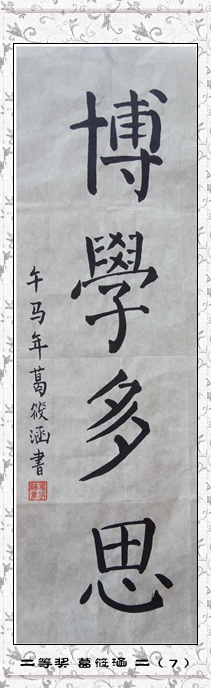 博學多思
午马年葛筱涵書
二等奖 葛筱涵 二（7）